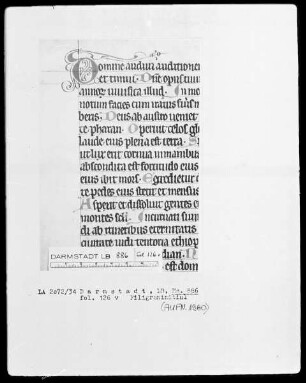 Domine audivi auditionem
et timui. Dñe opus tuum
annorum vivifica illud. In me
notum facies cum iratus fu̅is m
beris. Deus ab austro veniet
te pharan. Operuit celos gl
laude eius plena est terra. S
ut lux erit cornua in manibus
abscondita est fortitudo eius
eius ibit mors. Egredietur
te pedes eius stetit et mensus
Aspexit et dissolvit gentes
montes sc̅li. Incurvati sun
di ab itineribus eternitatis
quitate vidi tentoria ethiop
dian.
est dom
DARMSTADT LB 886 Bl 126 v
LA 2072/34 Darmstadt, LB, Hs. 886
fol. 126 v Filigraninitial
(AUFN. 1980)